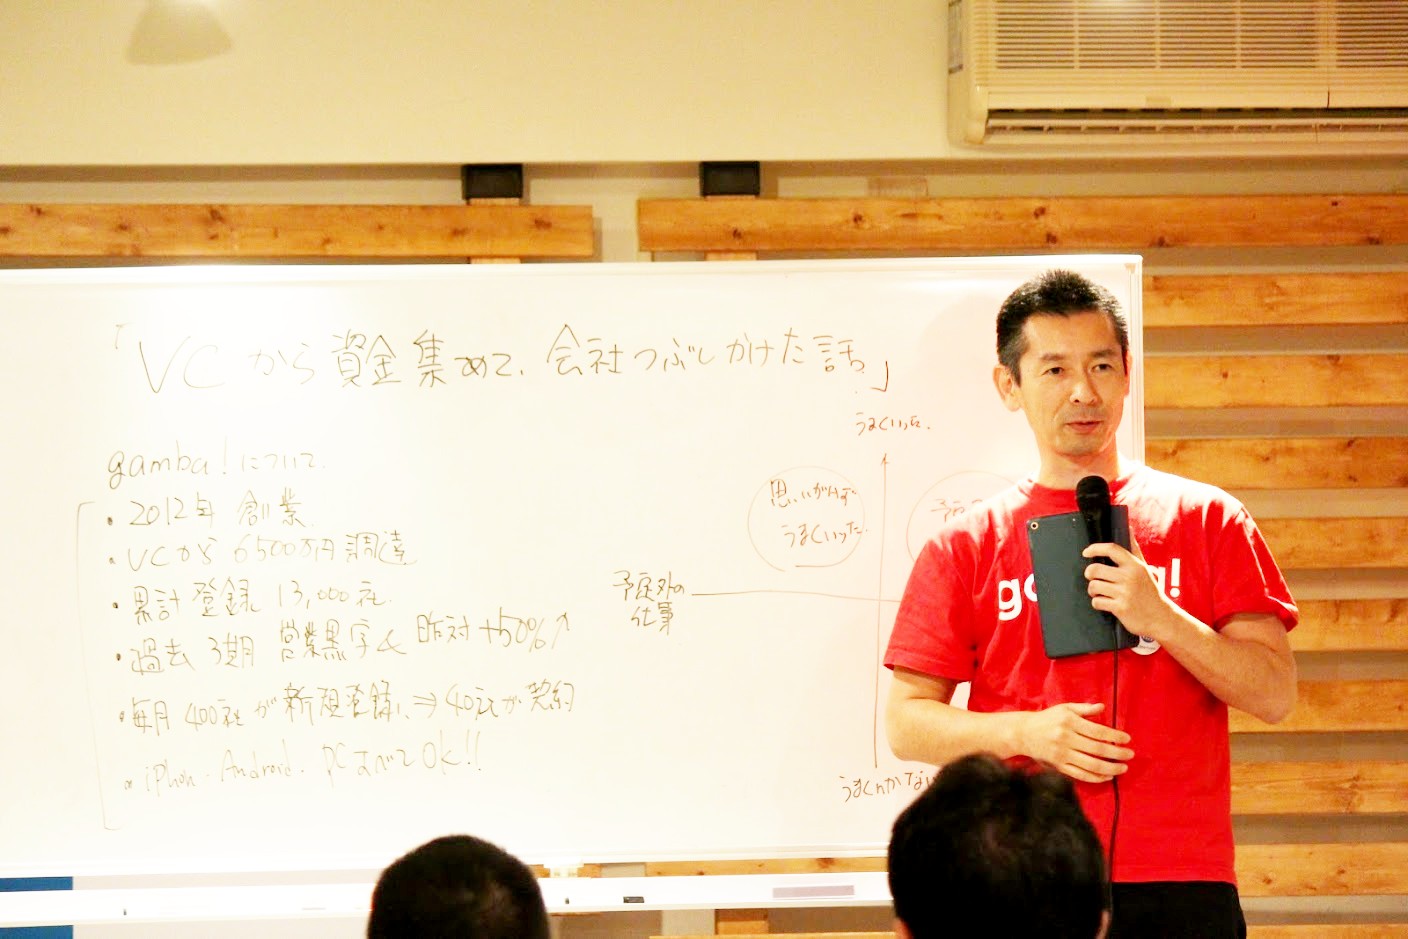 「VCから資金集めて、会社つぶしかけた話」
gamba!について
・2012年 創業
・VCから 6500万円調達
・累計登録 13,000社
・過去 3期 営業黒字 昨対 +50%↑
・毎月 400社が新規登録、⇒40社が契約
・iPhon・Android・PCすべてOK!!
うまくいった
思いがけず
うまくいった
予
予定外の
仕事
うまくいかない
g a!